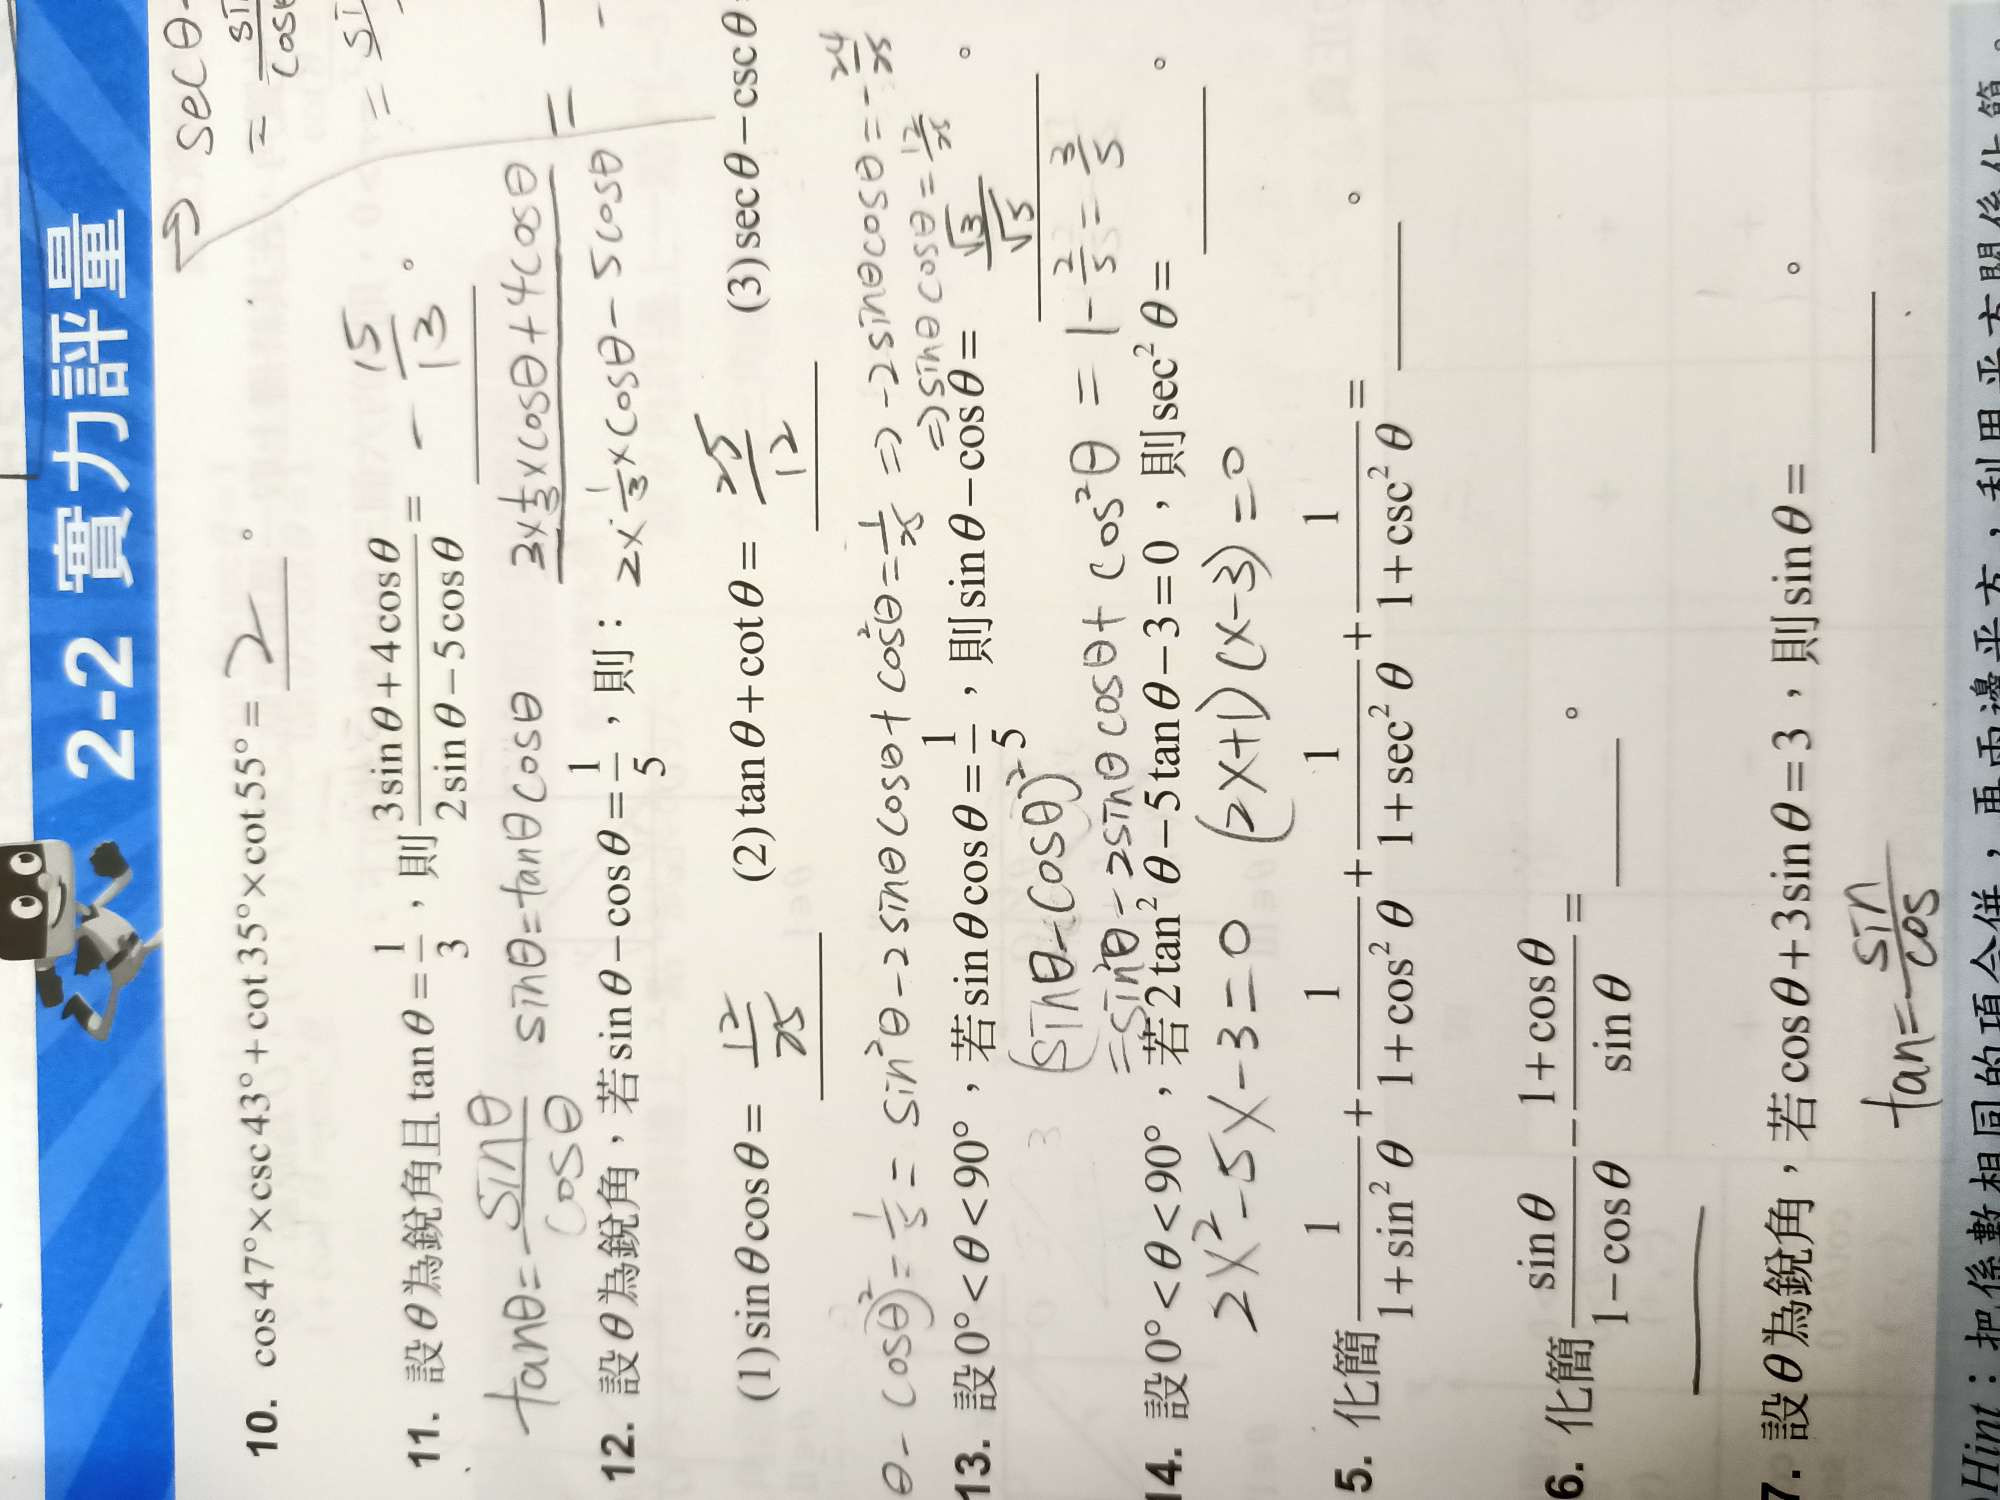 2-2 實力評量
secθ-
= 
10. cos47°×csc43°+cot35°×cot55°= 2 。
11. 設θ為銳角且tanθ=1/3，則(3sinθ+4cosθ)/(2sinθ-5cosθ)= -15/13 。
tanθ=sinθ/cosθ sinθ=tanθcosθ (3×1/3×cosθ+4cosθ)/(2×1/3×cosθ-5cosθ) =
12. 設θ為銳角，若sinθ-cosθ=1/5，則：
(1)sinθcosθ= 12/25 (2)tanθ+cotθ= 25/12 (3)secθ-cscθ=
θ-cosθ)²=1/5=sin²θ-2sinθcosθ+cos²θ=1/25 ⇒ -2sinθcosθ=-24/25
⇒sinθcosθ=12/25
13. 設0°<θ<90°，若sinθcosθ=1/5，則sinθ-cosθ= √3/√5 。
(sinθ-cosθ)²
=sin²θ-2sinθcosθ+cos²θ=1-2/5=3/5
14. 設0°<θ<90°，若2tan²θ-5tanθ-3=0，則sec²θ= 。
2x²-5x-3=0 (2x+1)(x-3)=0
5. 化簡1/(1+sin²θ)+1/(1+cos²θ)+1/(1+sec²θ)+1/(1+csc²θ)= 。
6. 化簡sinθ/(1-cosθ)-(1+cosθ)/sinθ= 。
7. 設θ為銳角，若cosθ+3sinθ=3，則sinθ= 。
tan=sin/cos
Hint：把係數相同的項合併，再兩邊平方，利用平方關係化簡。